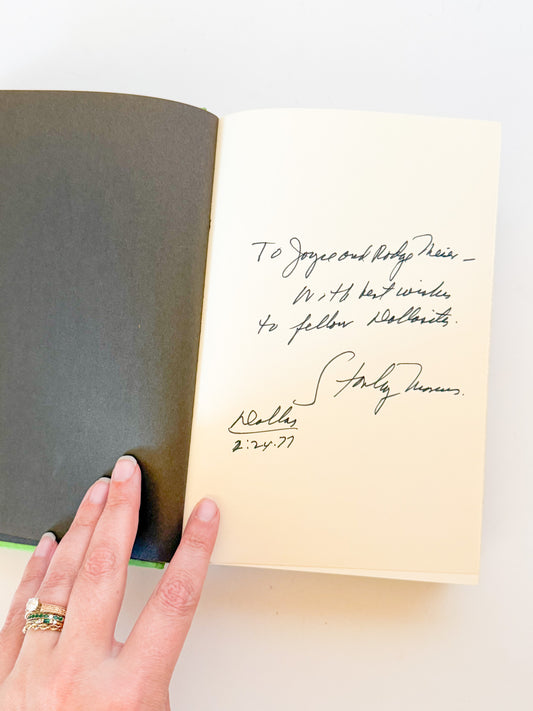 To Joyce and Rodge Meier –
With best wishes
to fellow Dallasites.
Stanley Marcus.
Dallas
2:24.77